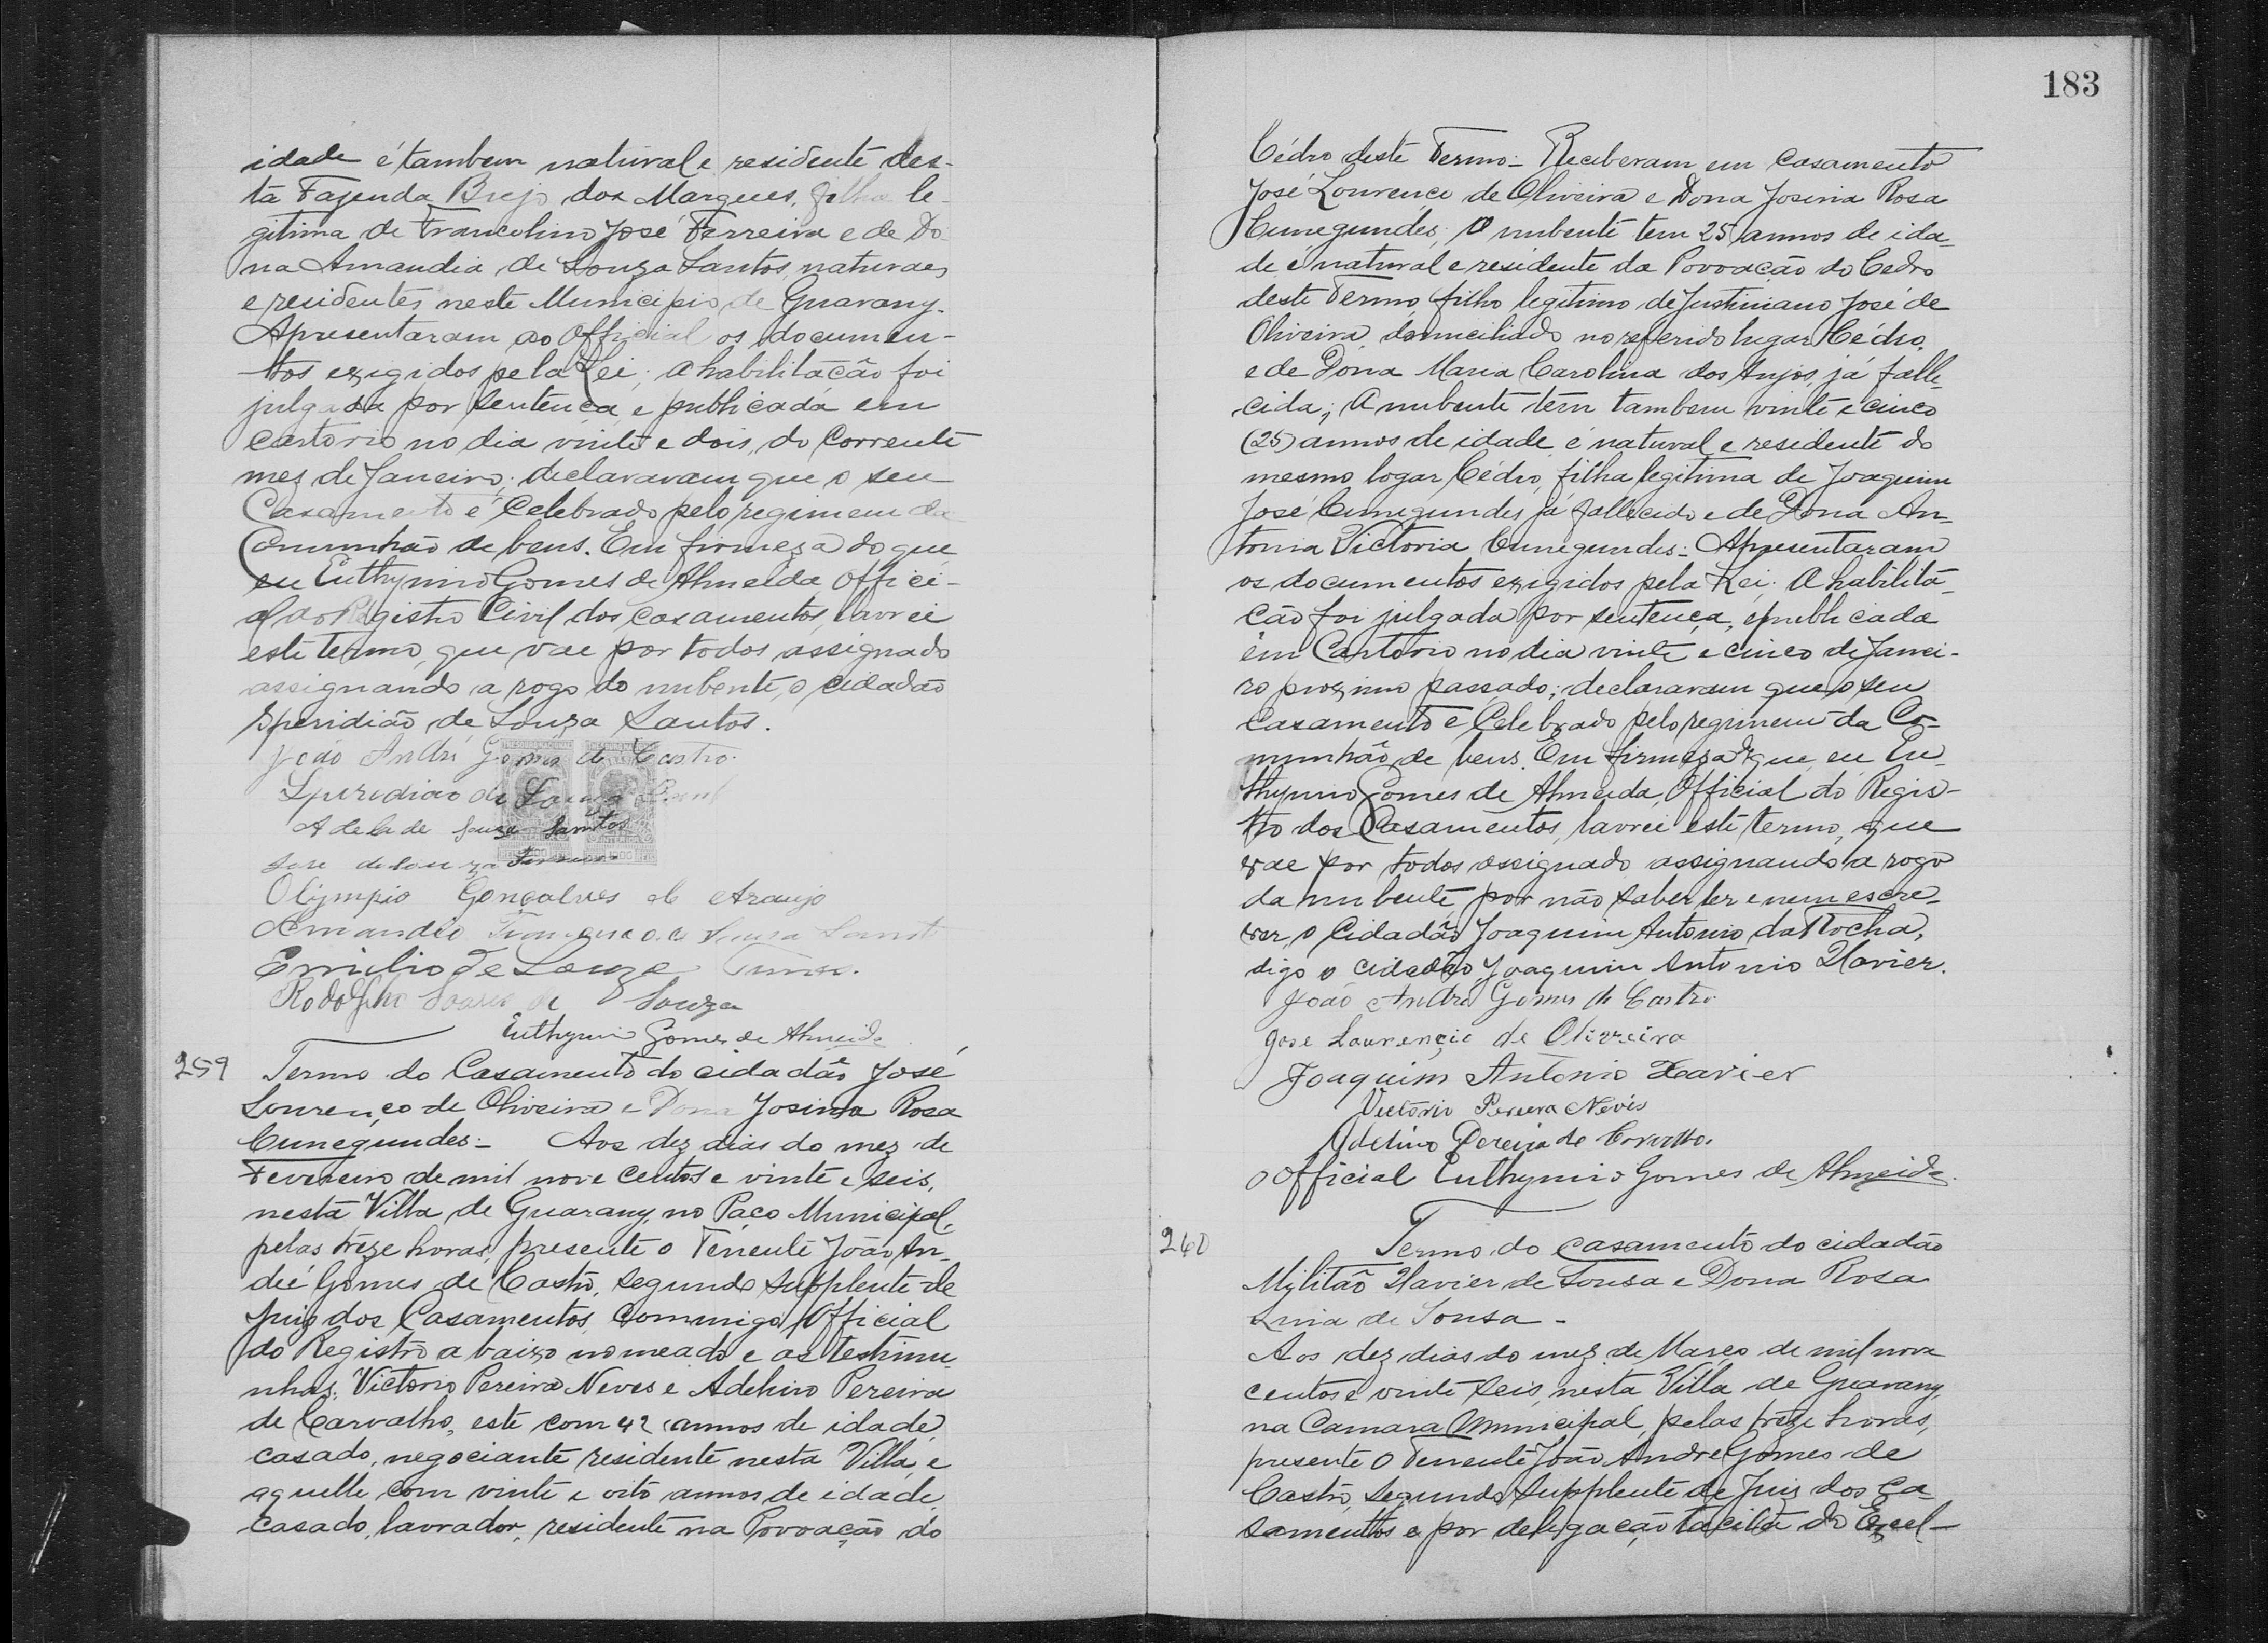 idade é tambem natural e residente des-
ta Fazenda Brejo dos Marques, filha le-
gitima de Francolino José Ferreira e de Do-
na Amandia de Souza Santos, naturaes
e residentes neste Municipio de Guarany.
Apresentaram ao Official os documen-
tos exigidos pela Lei; a habilitacão foi
julgada por sentença e publicada em
Cartorio no dia vinte e dois, do Corrente
mez de Janeiro; declararam que o seu
Casamento é Celebrado pelo regimem da
Comunhão de bens. Em firmeza do que
eu Euthymio Gomes de Almeida Offici-
al do Registro Civil dos casamentos, lavrei
este termo, que vae por todos assignado
assignando a rogo do nubente, o cidadão
Speridião de Souza Santos.
João André Gomes de Castro.
Speridião de Souza Sant
Adela de Souza Santos
Jose de Souza
Olympio Gonçalves de Araujo
Amandio de Souza Sant
Emilio de Souza
Rodolpho Soares de Souza
Euthymio Gomes de Almeida
259 Termo do Casamento do cidadão José
Lourenço de Oliveira e Dona Josina Rosa
Cunegundes - Aos dez dias do mez de
Fevereiro de mil nove centos e vinte e seis,
nesta Villa de Guarany, no Paço Municipal,
pelas treze horas, presente o Tenente João An-
dré Gomes de Castro, segundo supplente de
Juiz dos Casamentos, Commigo Official
do Registro a baixo nomeado e as testimu
nhas: Victorio Pereira Neves e Adelino Pereira
de Carvalho, este com 42 annos de idade,
casado, negociante residente nesta Villa, e
aquelle com vinte e oito annos de idade,
casado, lavrador, residente na Povoação do
183
Cédro deste Termo - Receberam em Casamento
José Lourenço de Oliveira e Dona Josina Rosa
Cunegundes; O nubente tem 25 annos de ida-
de é natural e residente da Povoação do Cedro
deste Termo, filho legitimo de Justiniano José de
Oliveira, domiciliado no referido lugar Cédro,
e de Dona Maria Carolina dos Anjos, já falle-
cida; A nubente têm tambem vinte e cinco
(25) annos de idade é natural e residente do
mesmo logar Cédro, filha legitima de Joaquim
José Cunegundes já fallecido e de Dona An-
tonia Victoria Cunegundes: Apresentaram
os documentos exigidos pela Lei; A habilita-
ção foi julgada por sentença, e publicada
em Cartorio no dia vinte e cinco de Janei-
ro proximo passado; declararam que o seu
casamento é Celebrado pelo regimem da Co-
munhão de bens. Em firmeza do que, eu Eu-
thymio Gomes de Almeida, Official do Regis-
tro dos Casamentos, lavrei este termo, que
vae por todos assignado assignando a rogo
da nubente por não saber ler e nem escre-
ver, o Cidadão Joaquim Antonio da Rocha,
digo o cidadão Joaquim Antonio Xavier.
João André Gomes de Castro
Jose Laurençio de Oliveira
Joaquim Antonio Xavier
Victorio Pereira Nevis
Adelino Pereira de Carvalho.
O Official Euthymio Gomes de Almeida.
240 Termo do casamento do cidadão
Militão Xavier de Sousa e Dona Rosa
Lina de Sousa -
Aos dez dias do mez de Março de mil nove
centos e vinte seis, nesta Villa de Guarany,
na Camara Municipal, pelas treze horas,
presente o Tenente João André Gomes de
Castro, segundo Supplente de Juiz dos Ca-
samentos e por delegação tacita do Excel-